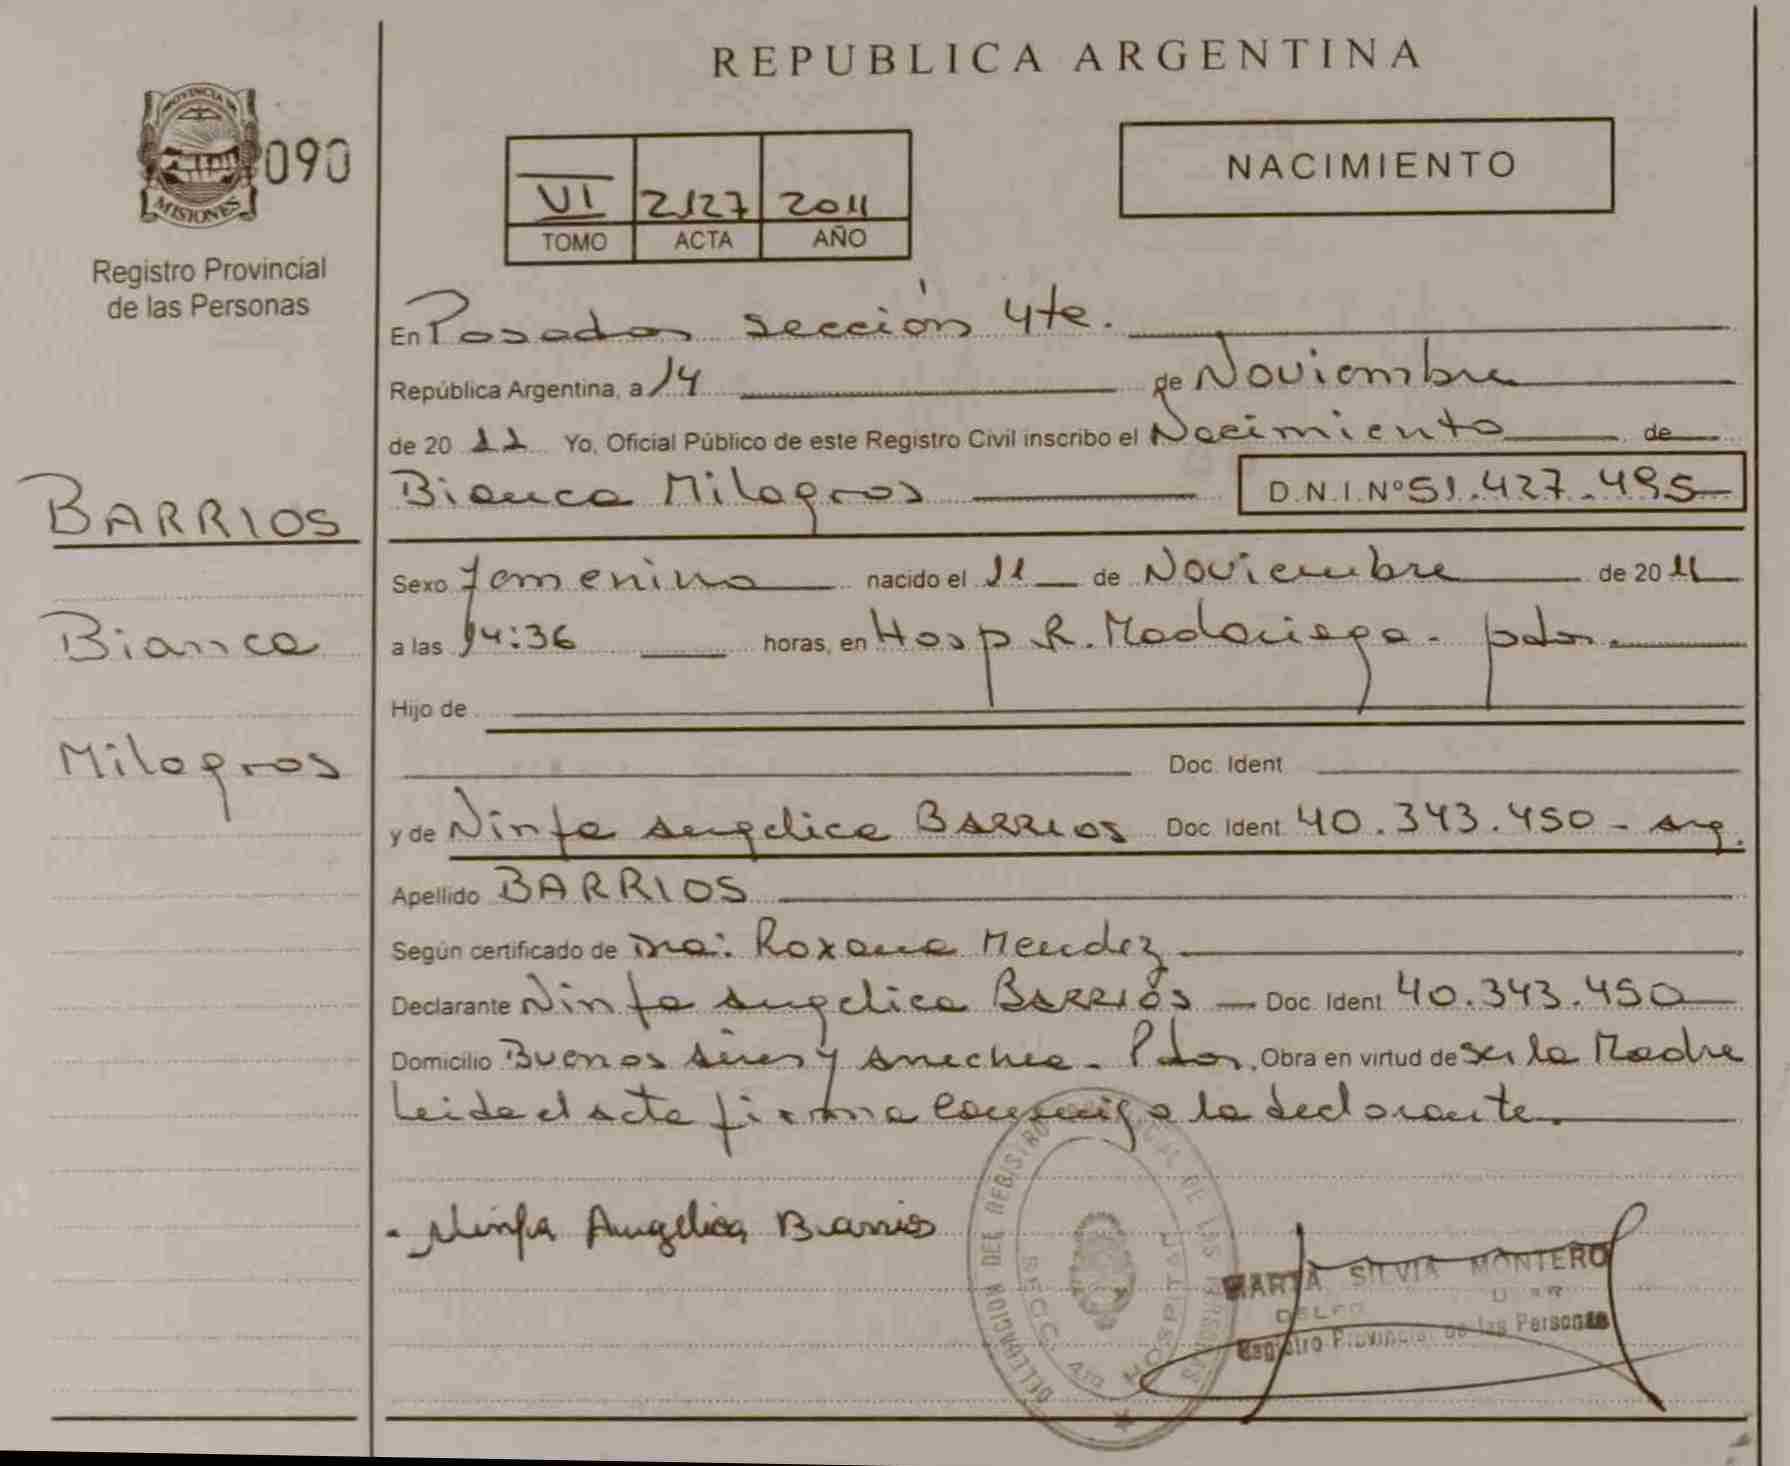 REPUBLICA ARGENTINA
PROVINCIA DE
MISIONES
090
Registro Provincial
de las Personas
VI 2127 2011
TOMO ACTA AÑO
NACIMIENTO
BARRIOS
Bianca
Milagros
En Posadas sección 4te.
República Argentina, a 14 de Noviembre
de 20 11 Yo, Oficial Público de este Registro Civil inscribo el Nacimiento de
Bianca Milagros D.N.I.Nº 51.427.495
Sexo Femenino nacido el 11 de Noviembre de 20 11
a las 14:36 horas, en Hosp R. Madariaga - pdas.
Hijo de
Doc. Ident
y de Ninfa Angelica BARRIOS Doc. Ident 40.343.450 - arg.
Apellido BARRIOS
Según certificado de Dra: Roxana Mendez
Declarante Ninfa Angelica BARRIOS Doc. Ident 40.343.450
Domicilio Buenos Aires y Anechea - Pdas. Obra en virtud de ser la Madre
Leida el acta firma conmigo la declarante.
Ninfa Angelica Barrios
DELEGACION DEL REGISTRO PROVINCIAL DE LAS PERSONAS
SECC. 4ta HOSPITAL
MARTA SILVIA MONTERO
Registro Provincial de las Personas